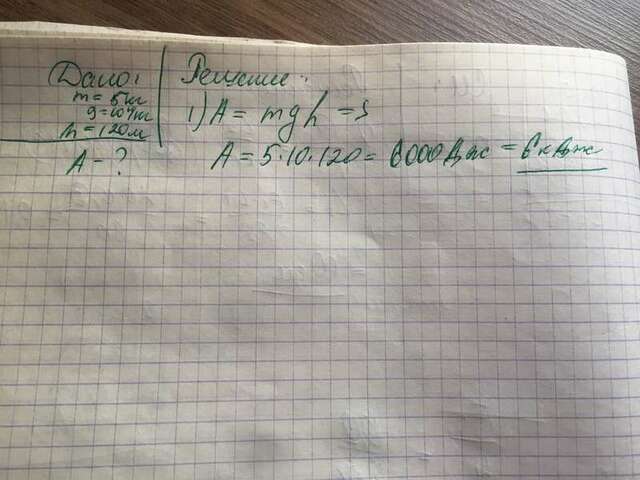 Дано:
m = 5кг
g = 10 Н/кг
h = 120м
A - ?
Решение:
1) A = mgh =>
A = 5·10·120 = 6000 Дж = 6 кДж